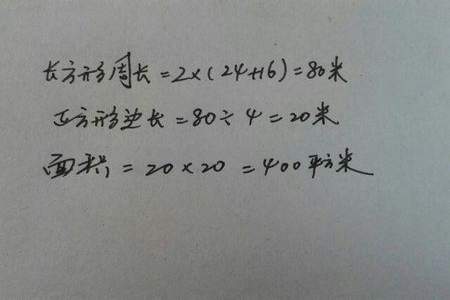 长方形周长=2×(24+16)=80米
正方形边长=80÷4=20米
面积=20×20=400平方米